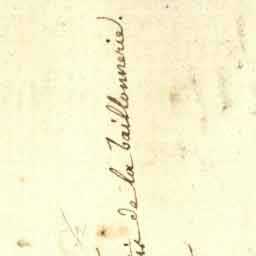 de la baillonnerie.